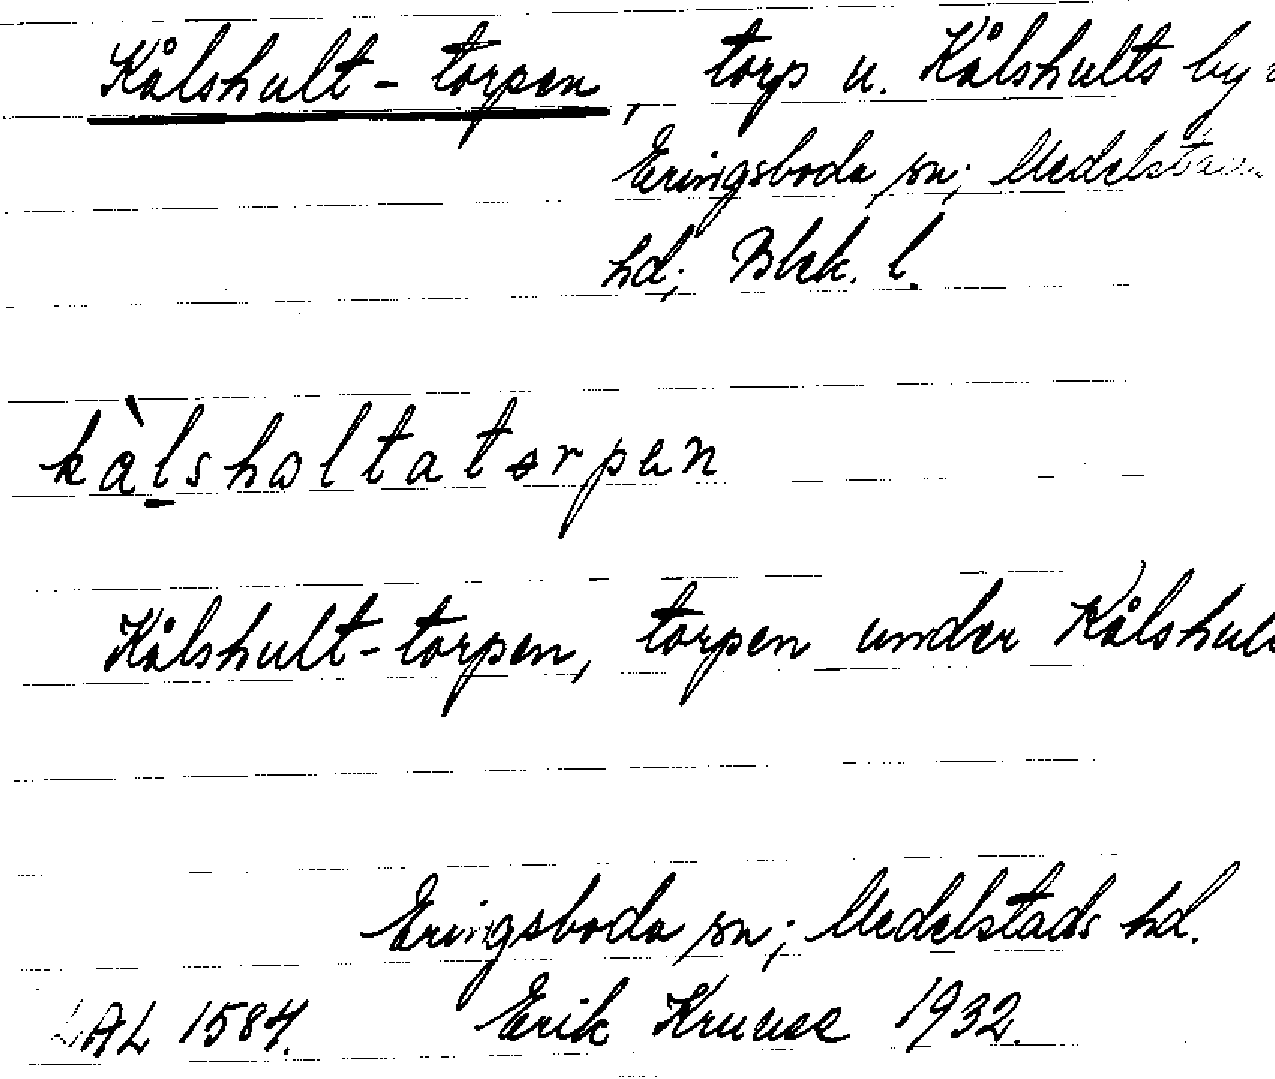 Kålshult-torpen, torp u. Kålshults by
Eringsboda sn; Medelstads
hd; Blek. l.
kàlshaltatorpen
Kålshult-torpen, torpen under Kålshult
Eringsboda sn; Medelstads hd.
LAL 1584. Erik Kruuse 1932.